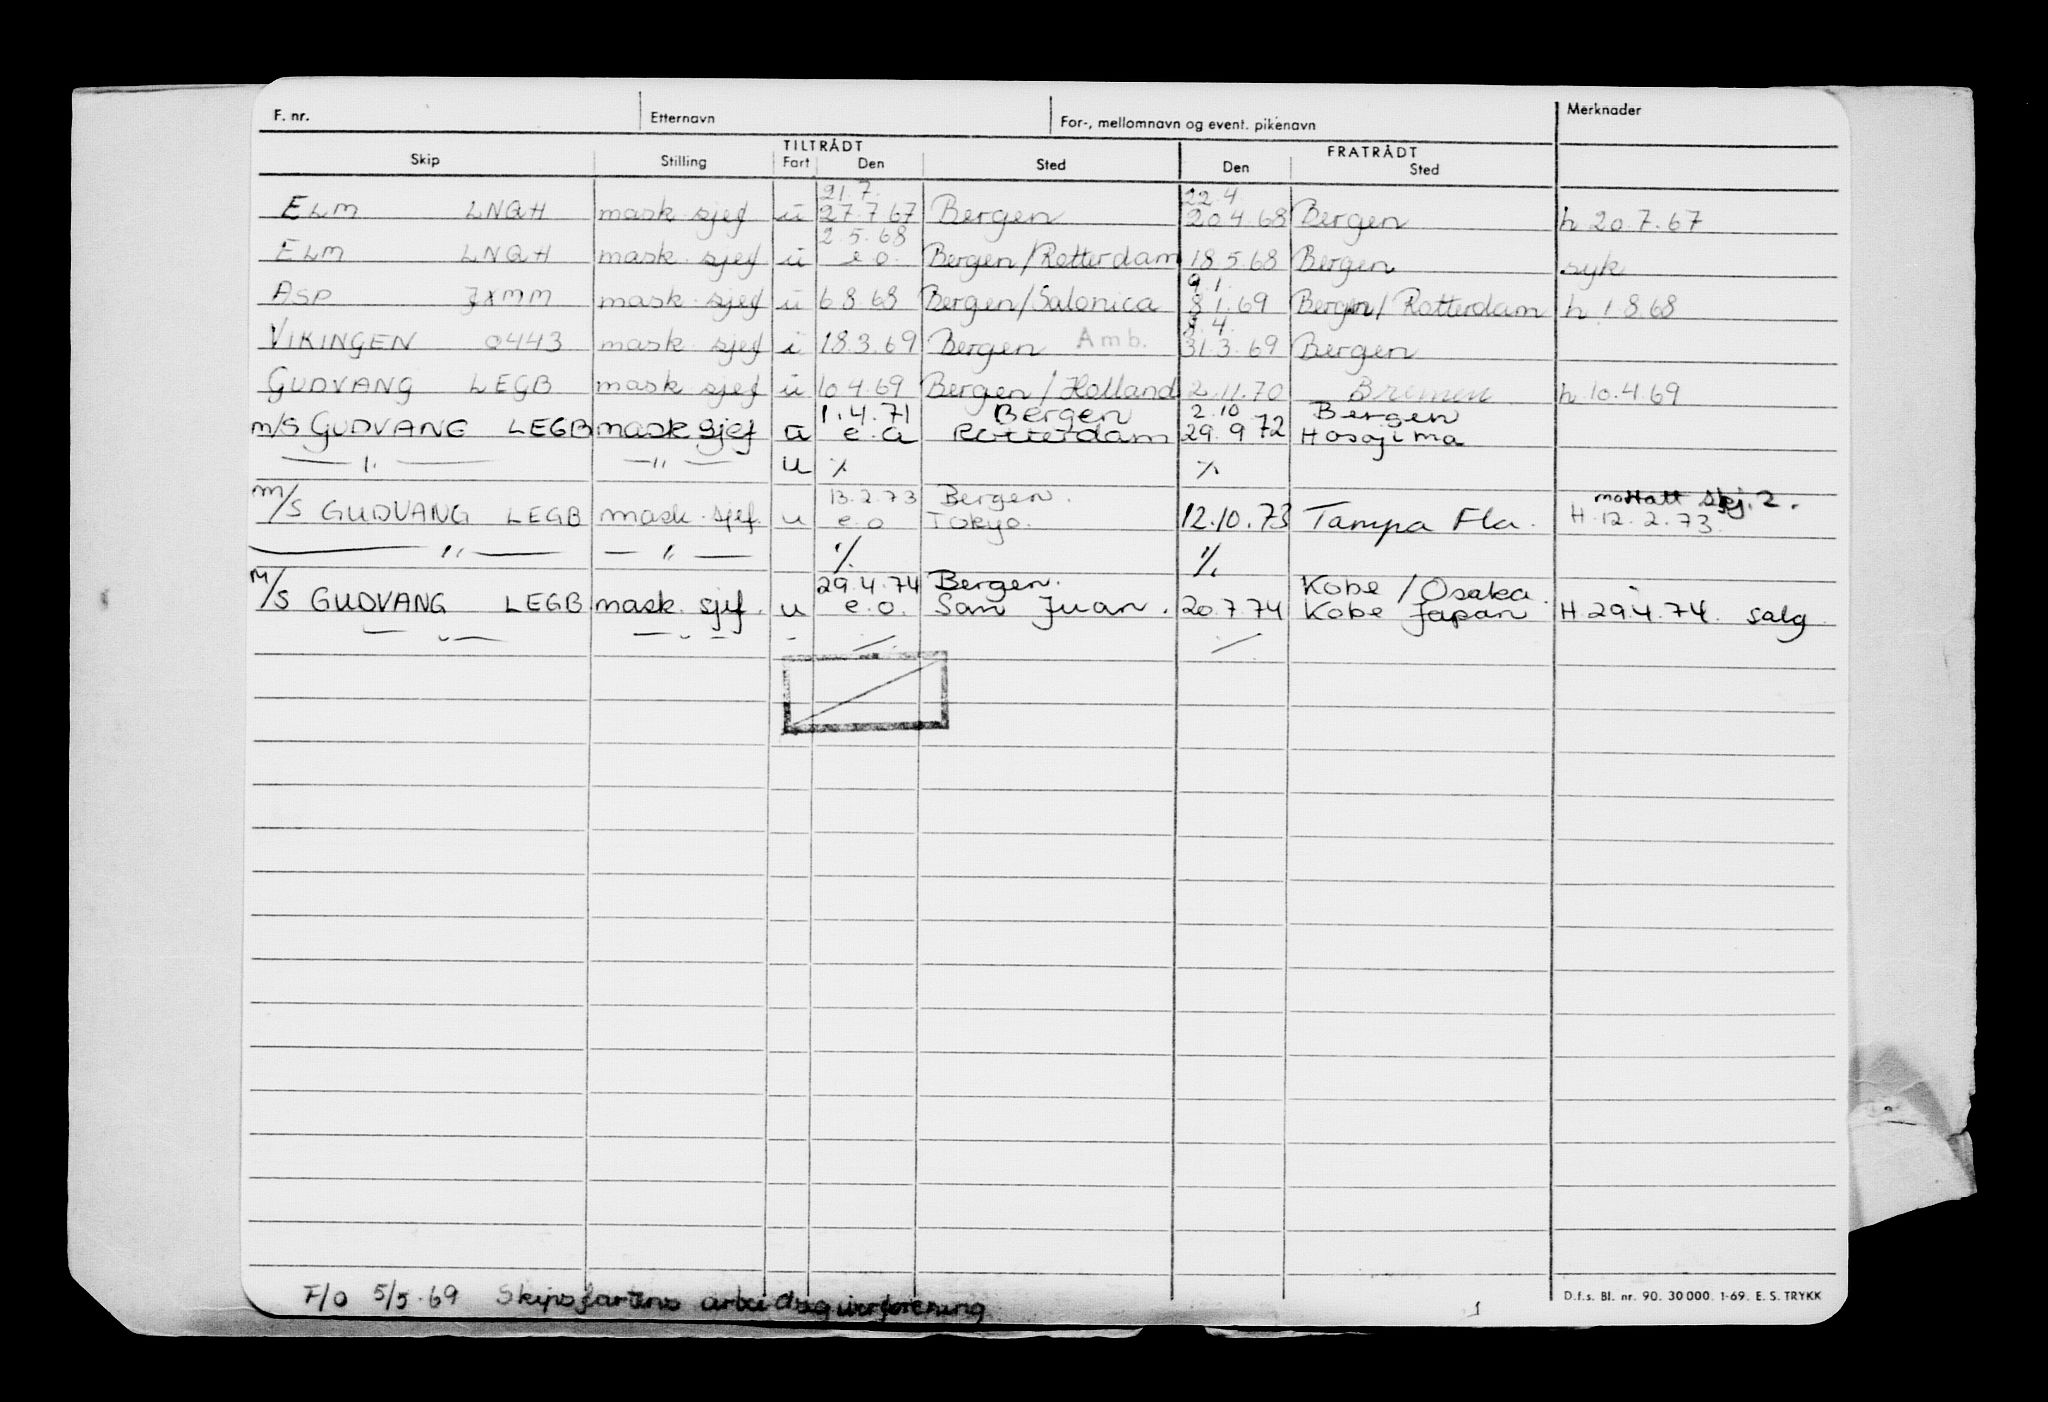 F. nr. Etternavn For-, mellomnavn og event. pikenavn Merknader
TILTRÅDT FRATRÅDT
Skip Stilling Fart Den Sted Den Sted
21.7. 22.4
ELM LNQH mask sjef u 27.7.67 Bergen 20.4.68 Bergen h 20.7.67
2.5.68
ELM LNQH mask sjef u e.o. Bergen/Rotterdam 18.5.68 Bergen syk
9.1.
ASP JXMM mask sjef u 6.8.68 Bergen/Salonica 8.1.69 Bergen/Rotterdam h 1.8.68
8.4.
VIKINGEN 0443 mask sjef i 18.3.69 Bergen Amb. 31.3.69 Bergen
GUDVANG LEGB mask sjef u 10.4.69 Bergen/Holland 2.11.70 Bremen h 10.4.69
1.4.71 Bergen 2.10 Bergen
m/s GUDVANG LEGB mask sjef u e.o Rotterdam 29.9.72 Hosojima
— " — — " — u % %
13.2.73 Bergen. mottatt skj. 2.
m/s GUDVANG LEGB mask. sjef. u e.o Tokyo. 12.10.73 Tampa Fla. H. 12.2.73.
— " — — " — % %
29.4.74 Bergen. Kobe/Osaka
M/S GUDVANG LEGB mask. sjef. u e.o. San Juan. 20.7.74 Kobe Japan H 29.4.74. salg
— " — — " — - / /
F/O 5/5.69 Skipsfartens arbeidsgiverforening
1
D.f.s. Bl. nr. 90. 30 000. 1-69. E. S. TRYKK